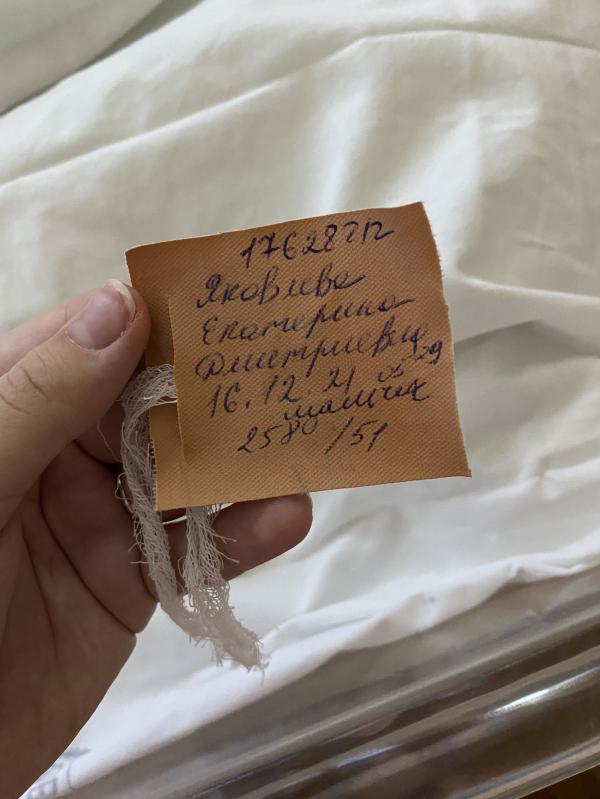 17628212
Яковлева
Екатерина
Дмитриевна
16.12.21 05 29
мальчик
2580/51